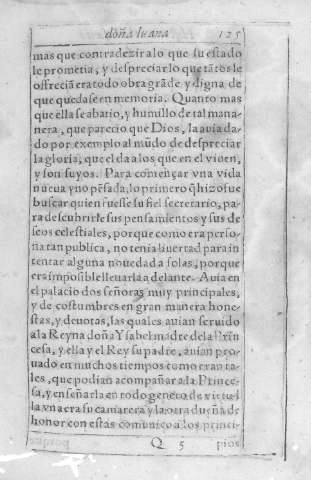 doña Iuana 125
mas que contradezir a lo que su estado
le prometia, y despreciar lo que tãtos le
offreciã era todo obra grãde y digna de
que quedase en memoria. Quanto mas
que ella se abatio, y humillo de tal mana-
nera, que parecio que Dios, la auia da-
do por exemplo al mũdo de despreciar
la gloria, que el da a los que en el viuen,
y son suyos. Para començar vna vida
nueua y no pẽsada, lo primero q̃ hizo fue
buscar quien fuesse su fiel secretario, pa-
ra descubrirle sus pensamientos y sus de
seos celestiales, porque como era perso
na tan publica, no tenia libertad para in
tentar alguna nouedad a solas, porque
era impossible lleuarla adelante. Auia en
el palacio dos señoras muy principales,
y de costumbres en gran manera hone-
stas, y deuotas, las quales auian seruido
a la Reyna doña Ysabel madre de la Prin
cesa, y ella y el Rey su padre, auian pro-
uado en muchos tiempos como eran ta-
les, que podian acompañar a la Prince-
sa, y enseñarla en todo genero de virtud
la vna era su camarera y la otra dueña de
honor con estas comunico a los princi-
Q 5 pios